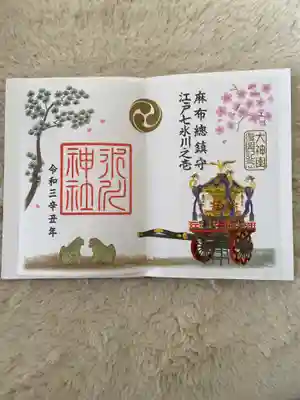 麻布總鎮守
江戸七氷川之壱
大神輿
氷川
神社
令和三辛丑年